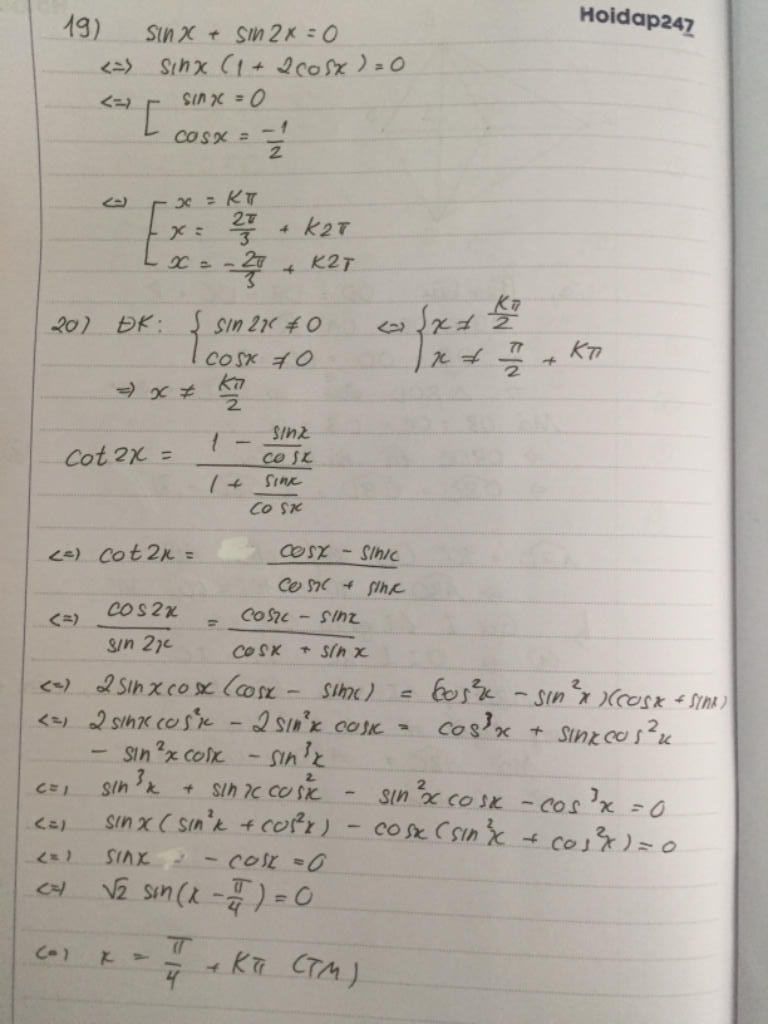 Hoidap247
19) sinx + sin2x = 0
<=> sinx (1 + 2cosx) = 0
<=> [ sinx = 0
cosx = -1/2
<=> [ x = Kπ
x = 2π/3 + K2π
x = -2π/3 + K2π
20) ĐK: { sin2x ≠ 0 <=> { x ≠ Kπ/2
cosx ≠ 0 x ≠ π/2 + Kπ
=> x ≠ Kπ/2
cot2x = (1 - sinx/cosx)/(1 + sinx/cosx)
<=> cot2x = (cosx - sinx)/(cosx + sinx)
<=> cos2x/sin2x = (cosx - sinx)/(cosx + sinx)
<=> 2sinxcosx (cosx - sinx) = (cos²x - sin²x)(cosx + sinx)
<=> 2sinxcos²x - 2sin²x cosx = cos³x + sinxcos²x
- sin²xcosx - sin³x
<=> sin³x + sinxcos²x - sin²xcosx - cos³x = 0
<=> sinx (sin²x + cos²x) - cosx (sin²x + cos²x) = 0
<=> sinx - cosx = 0
<=> √2 sin(x - π/4) = 0
<=> x = π/4 + Kπ (TM)